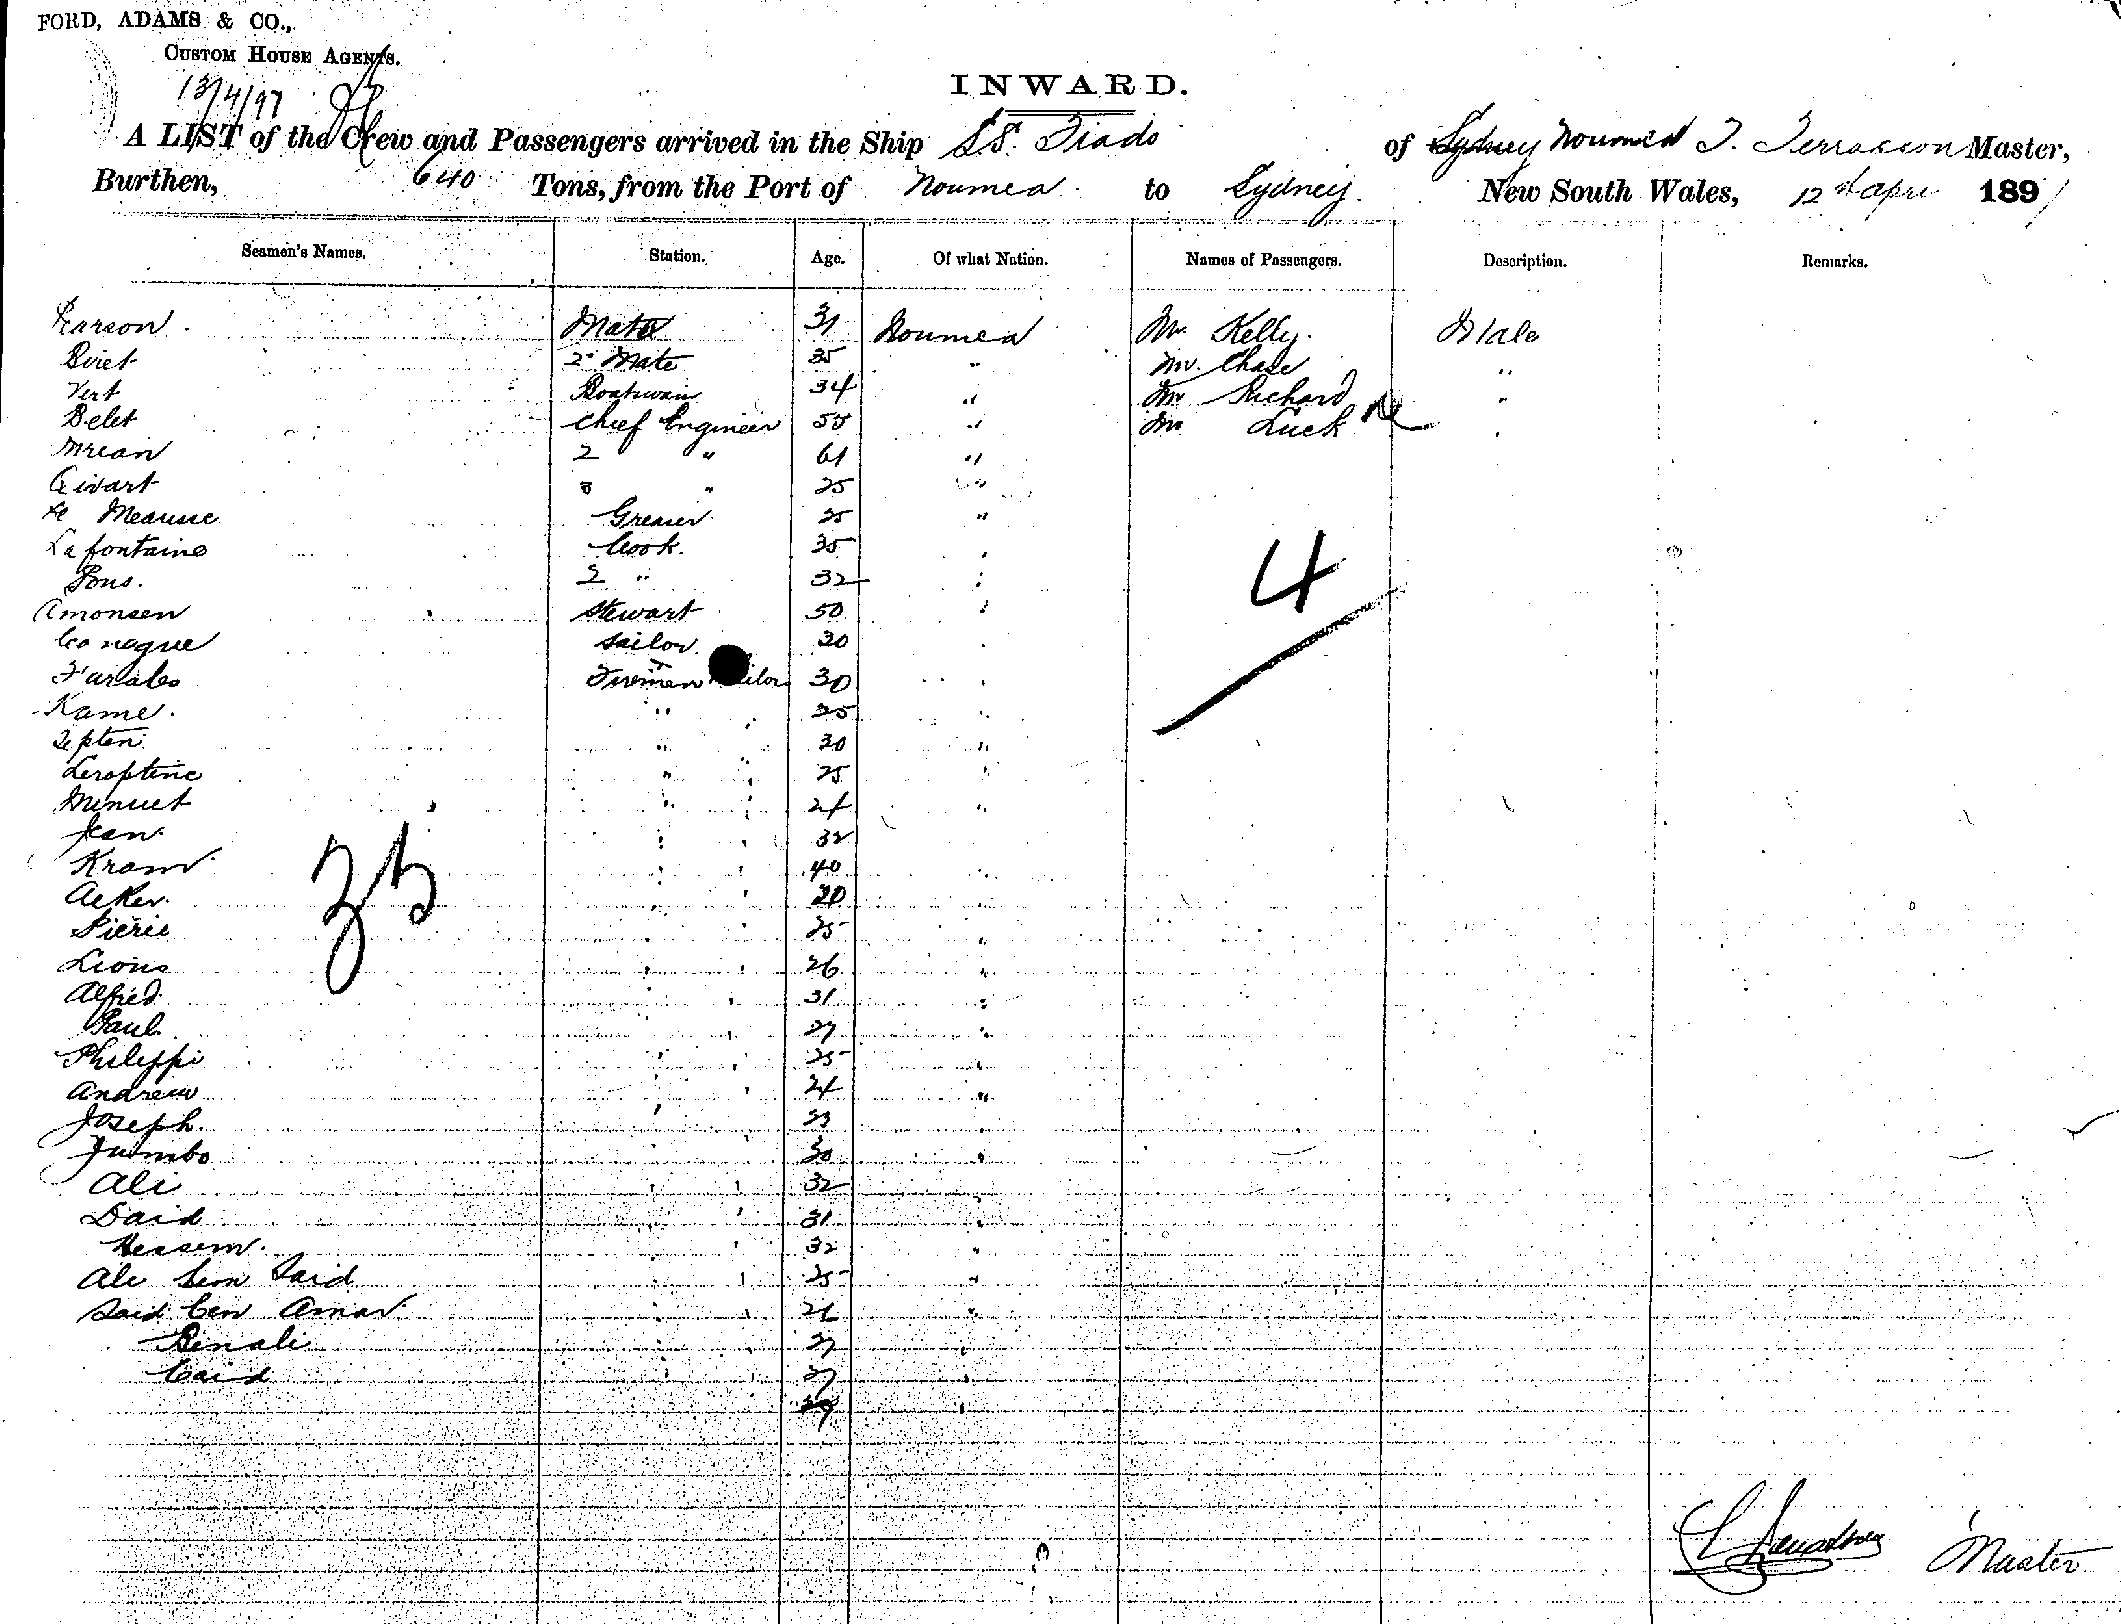 FORD, ADAMS & CO.,
CUSTOM HOUSE AGENTS.
13/4/97
INWARD.
A LIST of the Crew and Passengers arrived in the Ship S.S. Tiado of Sydney Noumea T. Terrasson Master,
Burthen, 640 Tons, from the Port of Noumea to Sydney New South Wales, 12th Apri 1897
Seamen's Names. Station. Age. Of what Nation. Names of Passengers. Description. Remarks.
Larson Mate 31 Noumea Mr. Kelly Male
Biret 2d Mate 35 " Mr. Chase "
Vert Boatswain 34 " Mr Richard "
Belet Chief Engineer 55 " Mr Luck "
Mrian 2 " 61 "
Givart 3 " 25 "
Le Meausse Greaser 25 "
Lafontaine Cook 35 "
Pons. 2 " 32 "
Amonsen Stewart 50 "
Conogue Sailor 30 "
4
Furales Firemen 30 "
Kame. " 25 "
Tepten " " 30 "
Leroptine " " 25 "
Minuet " " 24 "
Jean " " 32
Kram " " 40 "
35
Acker " " 20 "
Pierie " 25 "
Lions " " 26 "
Alfred " 31 "
Paul " 27 "
Philippi " " 25 "
Andrew " " 24 "
Joseph. " 23 "
Jumbo 30 "
Ali " " 32 "
Daid " 31 "
Hessem. " 32 "
Ali ben Said " 25 "
Said ben Amar " " 26 "
Binali " " 27 "
Caid " " 27 "
29 "
Master